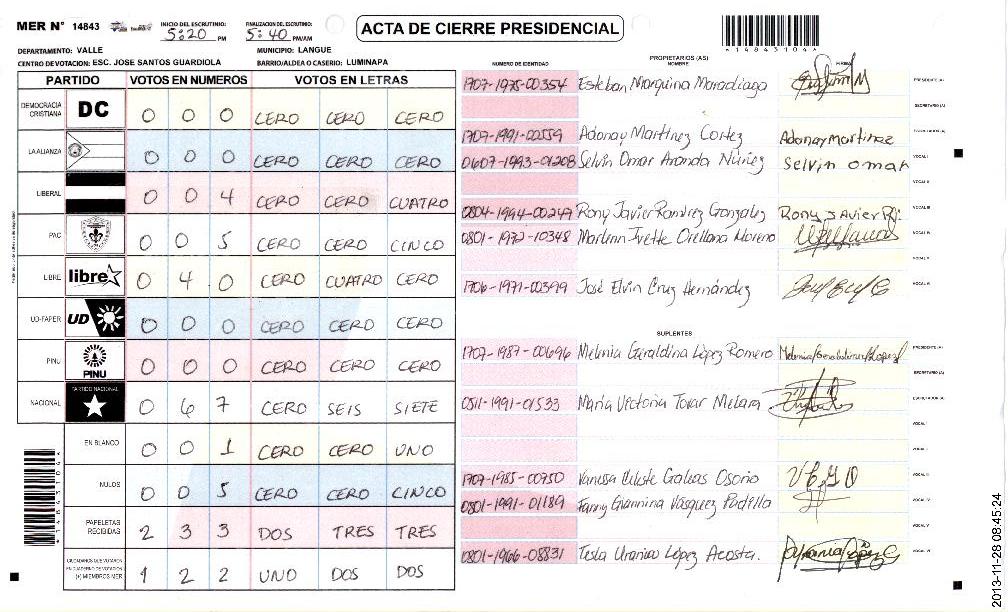 MER N° 14843 INICIO DEL ESCRUTINIO: 5:20 PM FINALIZACION DEL ESCRUTINIO: 5:40 PM/AM ACTA DE CIERRE PRESIDENCIAL
*14843104*
DEPARTAMENTO: VALLE MUNICIPIO: LANGUE
CENTRO DE VOTACION: ESC. JOSE SANTOS GUARDIOLA BARRIO/ALDEA O CASERIO: LUMINAPA
PARTIDO VOTOS EN NUMEROS VOTOS EN LETRAS
DEMOCRACIA CRISTIANA DC 0 0 0 CERO CERO CERO
LA ALIANZA 0 0 0 CERO CERO CERO
LIBERAL 0 0 4 CERO CERO CUATRO
PAC 0 0 5 CERO CERO CINCO
LIBRE libre 0 4 0 CERO CUATRO CERO
UD-FAPER UD 0 0 0 CERO CERO CERO
PINU PINU 0 0 0 CERO CERO CERO
NACIONAL PARTIDO NACIONAL 0 6 7 CERO SEIS SIETE
EN BLANCO 0 0 1 CERO CERO UNO
NULOS 0 0 5 CERO CERO CINCO
PAPELETAS RECIBIDAS 2 3 3 DOS TRES TRES
CIUDADANOS QUE VOTARON EN CUADERNO DE VOTACION (+) MIEMBROS MER 1 2 2 UNO DOS DOS
*14843104*
PROPIETARIOS (AS)
NUMERO DE IDENTIDAD NOMBRE FIRMA
1707-1975-00354 Esteban Marquina Maradiaga PRESIDENTE (A)
SECRETARIO (A)
1709-1991-00559 Adonay Martínez Cortez Adonay Martinez
0607-1993-01208 Selvin Omar Aranda Núñez Selvin omar VOCAL I
VOCAL II
0804-1994-00249 Rony Javier Ramírez Gonzalez VOCAL III
0801-1972-10348 Marlenn Ivette Orellana Moreno VOCAL IV
VOCAL V
1706-1971-00399 José Elvin Cruz Hernández VOCAL VI
SUPLENTES
1707-1987-00696 Melania Geraldina López Romero PRESIDENTE (A)
SECRETARIO (A)
0511-1991-01533 María Victoria Tovar Melara ESCRUTADOR (A)
VOCAL I
VOCAL II
1707-1985-00750 Vanesa Celeste Galeas Osorio VOCAL III
0801-1991-01189 Fanny Giannina Vásquez Padilla VOCAL IV
VOCAL V
0801-1966-08831 Tesla Urania López Acosta. VOCAL VI
2013-11-28 08:45:24